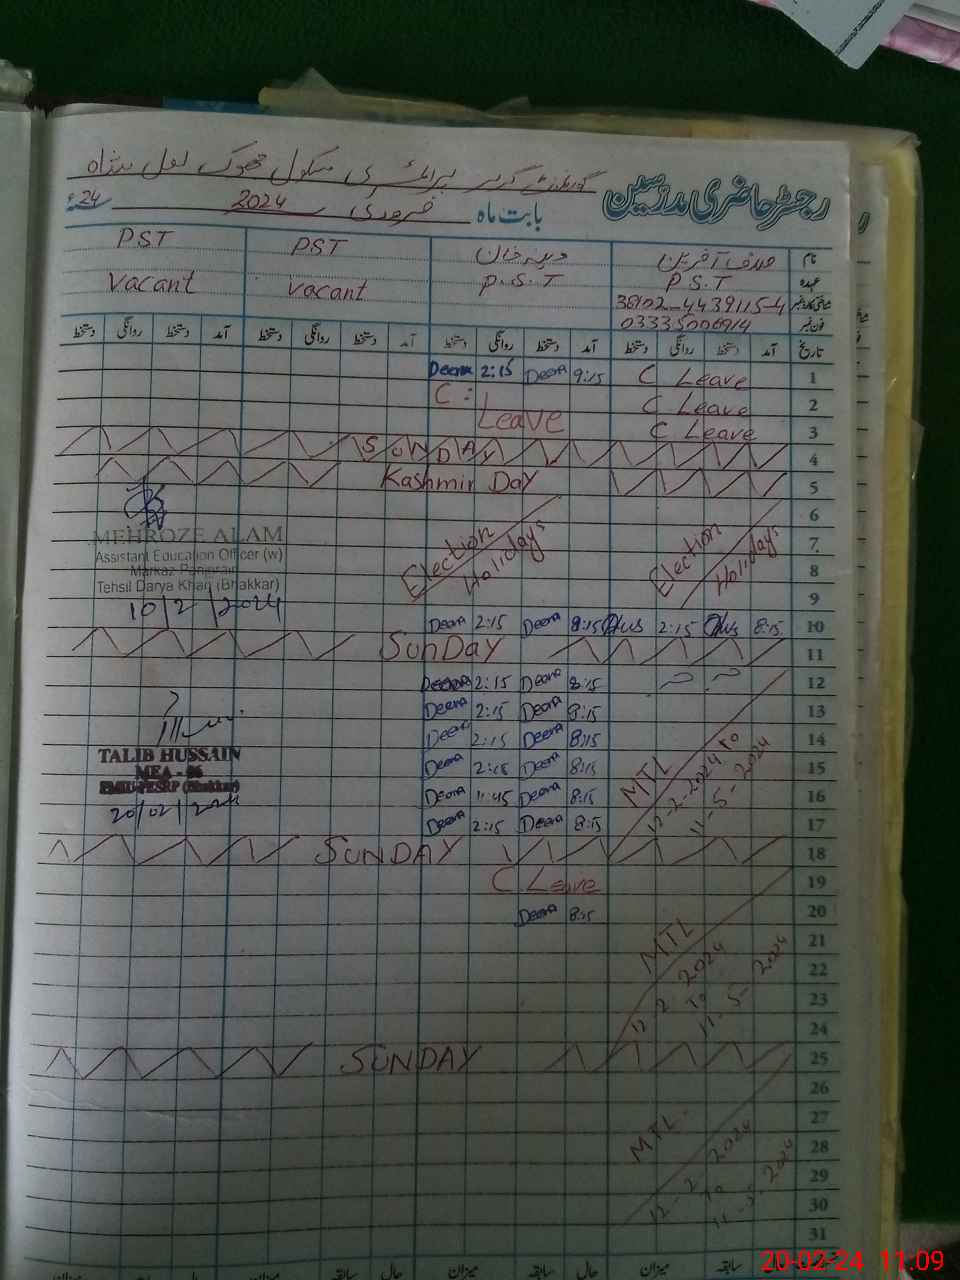 گورنمنٹ گرلز پرائمری سکول جھوک لعل شاہ
رجسٹر حاضری مدرسین
بابت ماہ فروری 2024 24ء
نام PST PST
عہدہ P.S.T P.S.T Vacant Vacant
38102-4439115-4
فون نمبر 03335006914
تاریخ آمد دستخط روانگی دستخط آمد دستخط روانگی دستخط آمد دستخط روانگی دستخط آمد دستخط روانگی دستخط
1 C Leave 9:15 Deena 2:15 Deena
2 C Leave C: Leave
3 C Leave
4 SUNDAY
5 Kashmir Day
6
7 Election Holidays Election Holidays
8
9
MEHROZE ALAM
Assistant Education Officer (w)
Markaz Panjgirain
Tehsil Darya Khan (Bhakkar)
10/2/2024
10 8:15 2:15 8:15 Deena 2:15 Deena
11 SUNDAY
12 8:15 Deena 2:15 Deena
13 8:15 Deena 2:15 Deena
14 8:15 Deena 2:15 Deena
15 8:15 Deena 2:15 Deena
16 8:15 Deena 11:45 Deena
17 8:15 Deena 2:15 Deena
MTL
12-2-2024 To
11-5-2024
TALIB HUSSAIN
MEA - 06
PMIU-PESRP (Bhakkar)
20/02/2024
18 SUNDAY
19 C Leave
20 8:15 Deena
21
22
23
24
MTL
12-2-2024
To
11-5-2024
25 SUNDAY
26
27
28
29
30
31
MTL
12-2-2024
To
11-5-2024
سابقہ میزان حال سابقہ میزان حال سابقہ میزان
20-02-24 11:09